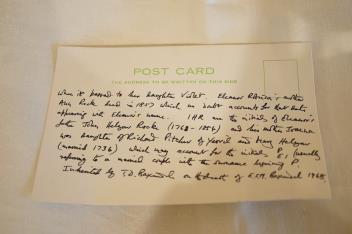 POST CARD
THE ADDRESS TO BE WRITTEN ON THIS SIDE
when it passed to her daughter Violet. Eleanor Rebecca's mother
Ann Rock died in 1817 which no doubt accounts for that date
appearing with Eleanor's name. IHR are the initials of Eleanor's
father John Rock (1768-1856) and his mother Joanna
was daughter of Richard Pitcher of Yeovil and Mary
(married 1736) which may account for the initials P (usually
referring to a married couple with the surname beginning P.
by T.D. on the death of 1968.